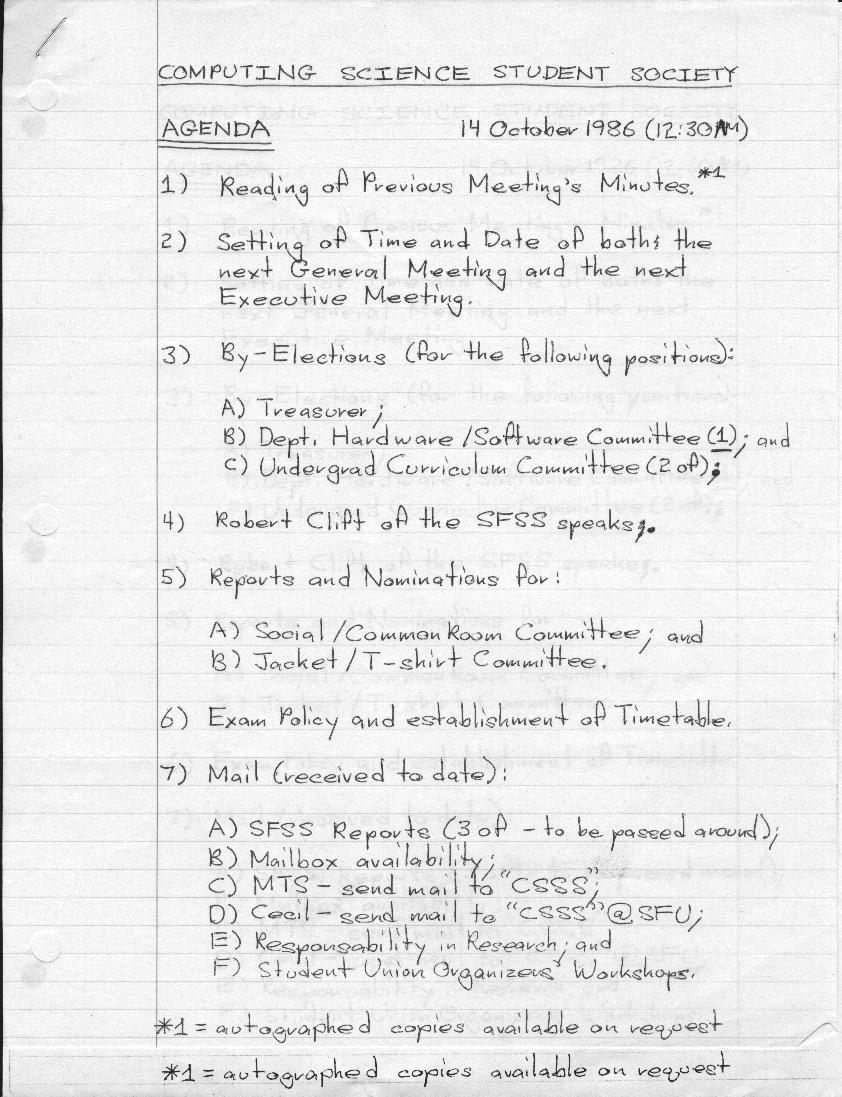 COMPUTING SCIENCE STUDENT SOCIETY
AGENDA 14 October 1986 (12:30PM)
1) Reading of Previous Meeting's Minutes.*1
2) Setting of Time and Date of both: the
next General Meeting and the next
Executive Meeting.
3) By-Elections (for the following positions):
A) Treasurer;
B) Dept. Hardware/Software Committee (1); and
C) Undergrad Curriculum Committee (2 of);
4) Robert Clift of the SFSS speaks.
5) Reports and Nominations for:
A) Social/Common Room Committee; and
B) Jacket/T-shirt Committee.
6) Exam Policy and establishment of Timetable.
7) Mail (received to date):
A) SFSS Reports (3 of - to be passed around);
B) Mailbox availability;
C) MTS - send mail to "CSSS";
D) Cecil - send mail to "CSSS"@SFU;
E) Responsability in Research; and
F) Student Union Organizers' Workshops.
*1 = autographed copies available on request
*1 = autographed copies available on request